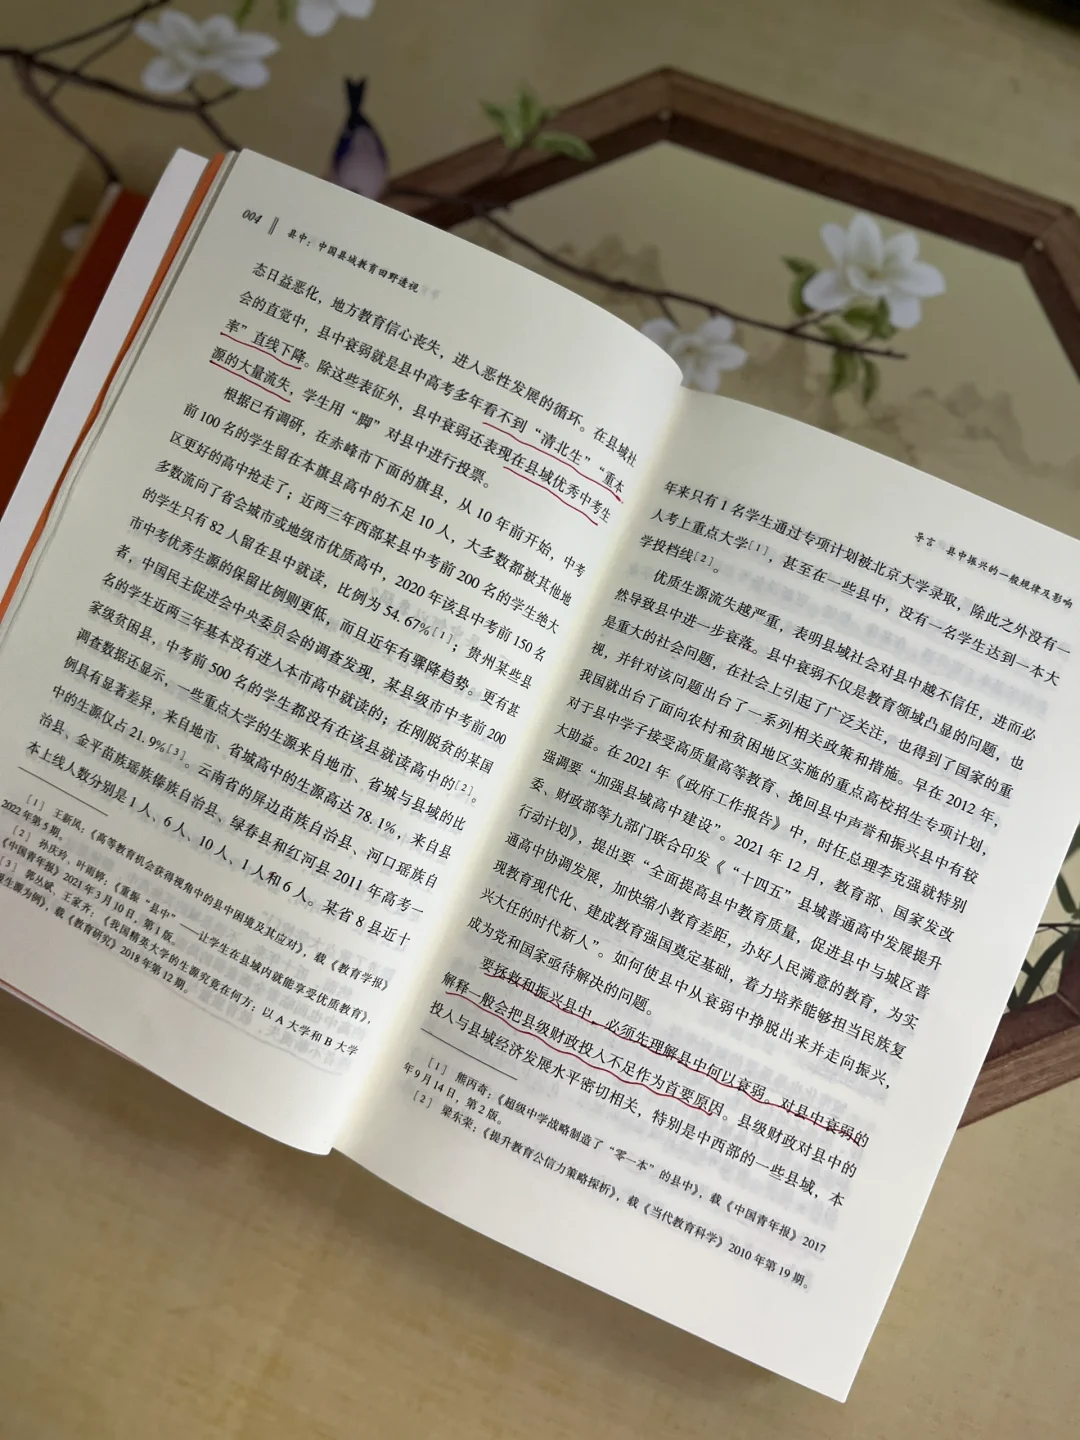 004 ‖ 县中：中国县域教育田野透视
态日益恶化，地方教育信心丧失，进入恶性发展的循环。在县域社
会的直觉中，县中衰弱就是县中高考多年看不到“清北生”“重本
率”直线下降。除这些表征外，县中衰弱还表现在县域优秀中考生
源的大量流失，学生用“脚”对县中进行投票。
根据已有调研，在赤峰市下面的旗县，从 10 年前开始，中考
前 100 名的学生留在本旗县高中的不足 10 人，大多数都被其他地
区更好的高中抢走了；近两三年西部某县中考前 200 名的学生绝大
多数流向了省会城市或地级市优质高中，2020 年该县中考前 150 名
的学生只有 82 人留在县中就读，比例为 54.67%[1]；贵州某些县
市中考优秀生源的保留比例则更低，而且近年有骤降趋势。更有甚
者，中国民主促进会中央委员会的调查发现，某县级市中考前 200
名的学生近两三年基本没有进入本市高中就读的；在刚脱贫的某国
家级贫困县，中考前 500 名的学生都没有在该县就读高中的[2]。
调查数据还显示，一些重点大学的生源来自地市、省城与县域的比
例具有显著差异，来自地市、省城高中的生源高达 78.1%，来自县
中的生源仅占 21.9%[3]。云南省的屏边苗族自治县、河口瑶族自
治县、金平苗族瑶族傣族自治县、绿春县和红河县 2011 年高考一
本上线人数分别是 1 人、6 人、10 人、1 人和 6 人。某省 8 县近十
[1] 王新风：《高等教育机会获得视角中的县中困境及其应对》，载《教育学报》
2022 年第 5 期。
[2] 孙庆玲、叶雨婷：《重振“县中”——让学生在县域内就能享受优质教育》，
《中国青年报》2021 年 3 月 10 日，第 1 版。
[3] 郭丛斌、王家齐：《我国精英大学的生源究竟在何方：以 A 大学和 B 大学
生源为例》，载《教育研究》2018 年第 12 期。
导言 县中振兴的一般规律及影响
年来只有 1 名学生通过专项计划被北京大学录取，除此之外没有一
人考上重点大学[1]，甚至在一些县中，没有一名学生达到一本大
学投档线[2]。
优质生源流失越严重，表明县域社会对县中越不信任，进而必
然导致县中进一步衰落。县中衰弱不仅是教育领域凸显的问题，也
是重大的社会问题，在社会上引起了广泛关注，也得到了国家的重
视，并针对该问题出台了一系列相关政策和措施。早在 2012 年，
我国就出台了面向农村和贫困地区实施的重点高校招生专项计划，
对于县中学子接受高质量高等教育、挽回县中声誉和振兴县中有较
大助益。在 2021 年《政府工作报告》中，时任总理李克强就特别
强调要“加强县域高中建设”。2021 年 12 月，教育部、国家发改
委、财政部等九部门联合印发《“十四五”县域普通高中发展提升
行动计划》，提出要“全面提高县中教育质量，促进县中与城区普
通高中协调发展，加快缩小教育差距，办好人民满意的教育，为实
现教育现代化、建成教育强国奠定基础，着力培养能够担当民族复
兴大任的时代新人”。如何使县中从衰弱中挣脱出来并走向振兴，
成为党和国家亟待解决的问题。
要拯救和振兴县中，必须先理解县中何以衰弱。对县中衰弱的
解释一般会把县级财政投入不足作为首要原因。县级财政对县中的
投入与县域经济发展水平密切相关，特别是中西部的一些县域，本
[1] 熊丙奇：《超级中学战略制造了“零一本”的县中》，载《中国青年报》2017
年 9 月 14 日，第 2 版。
[2] 梁东荣：《提升教育公信力策略探析》，载《当代教育科学》2010 年第 19 期。